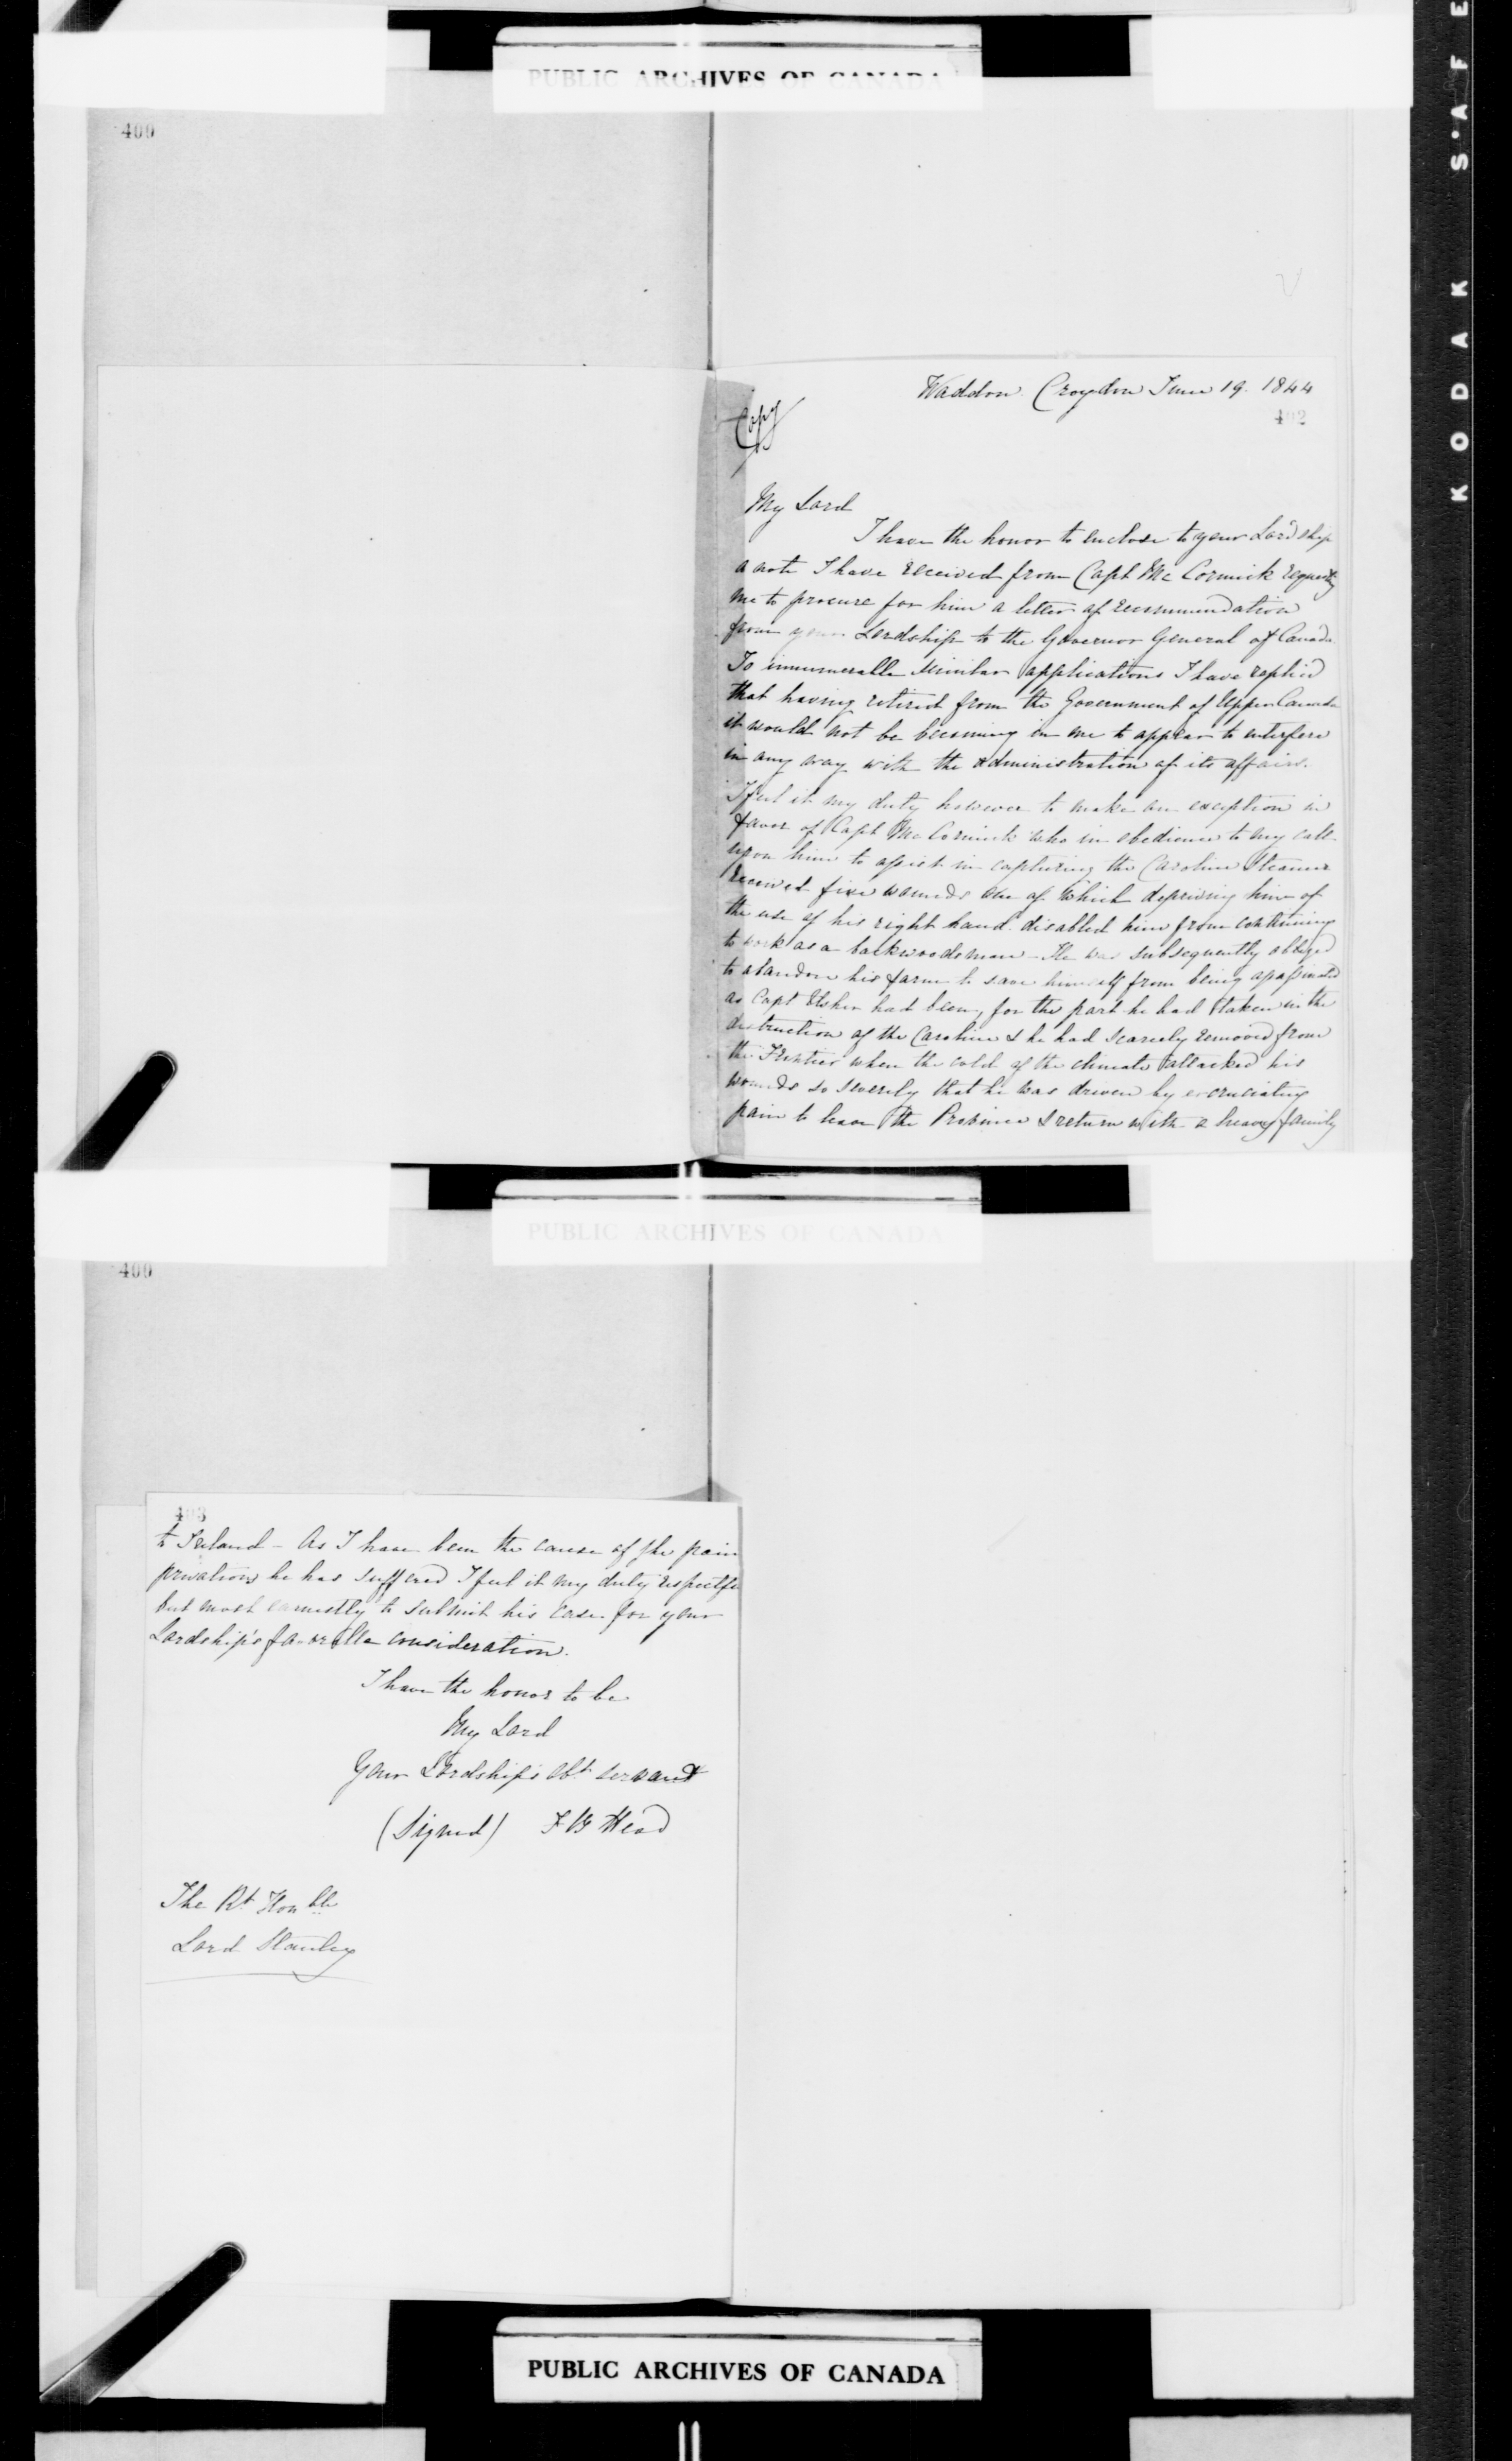 PUBLIC ARCHIVES OF CANADA
400
Waddon Croydon June 19. 1844
402
Copy
My Lord
I have the honor to enclose to your Lordship
a note I have received from Capt McCormick requesting
me to procure for him a letter of recommendation
from your Lordship to the Governor General of Canada.
To innumerable similar applications I have replied
that having retired from the Government of Upper Canada
it would not be becoming in me to appear to interfere
in any way with the administration of its affairs.
I feel it my duty however to make an exception in
favor of Capt McCormick who in obedience to my call
upon him to assist in capturing the Caroline Steamer
received five wounds one of which depriving him of
the use of his right hand disabled him from continuing
to work as a backwoodsman - He was subsequently obliged
to abandon his farm to save himself from being assassinated
as Capt Usher had been, for the part he had taken in the
destruction of the Caroline & he had scarcely removed from
the Frontier when the cold of the climate attacked his
wounds so severely that he was driven by excruciating
pain to leave the Province & return with a heavy family
PUBLIC ARCHIVES OF CANADA
400
403
to Ireland - As I have been the cause of the pain
privations he has suffered I feel it my duty respectfu
but most earnestly to submit his case for your
Lordship's favorable consideration.
I have the honor to be
My Lord
Your Lordship's obt servant
(Signed) F B Head
The Rt Honble
Lord Stanley
PUBLIC ARCHIVES OF CANADA
KODAK SAFE